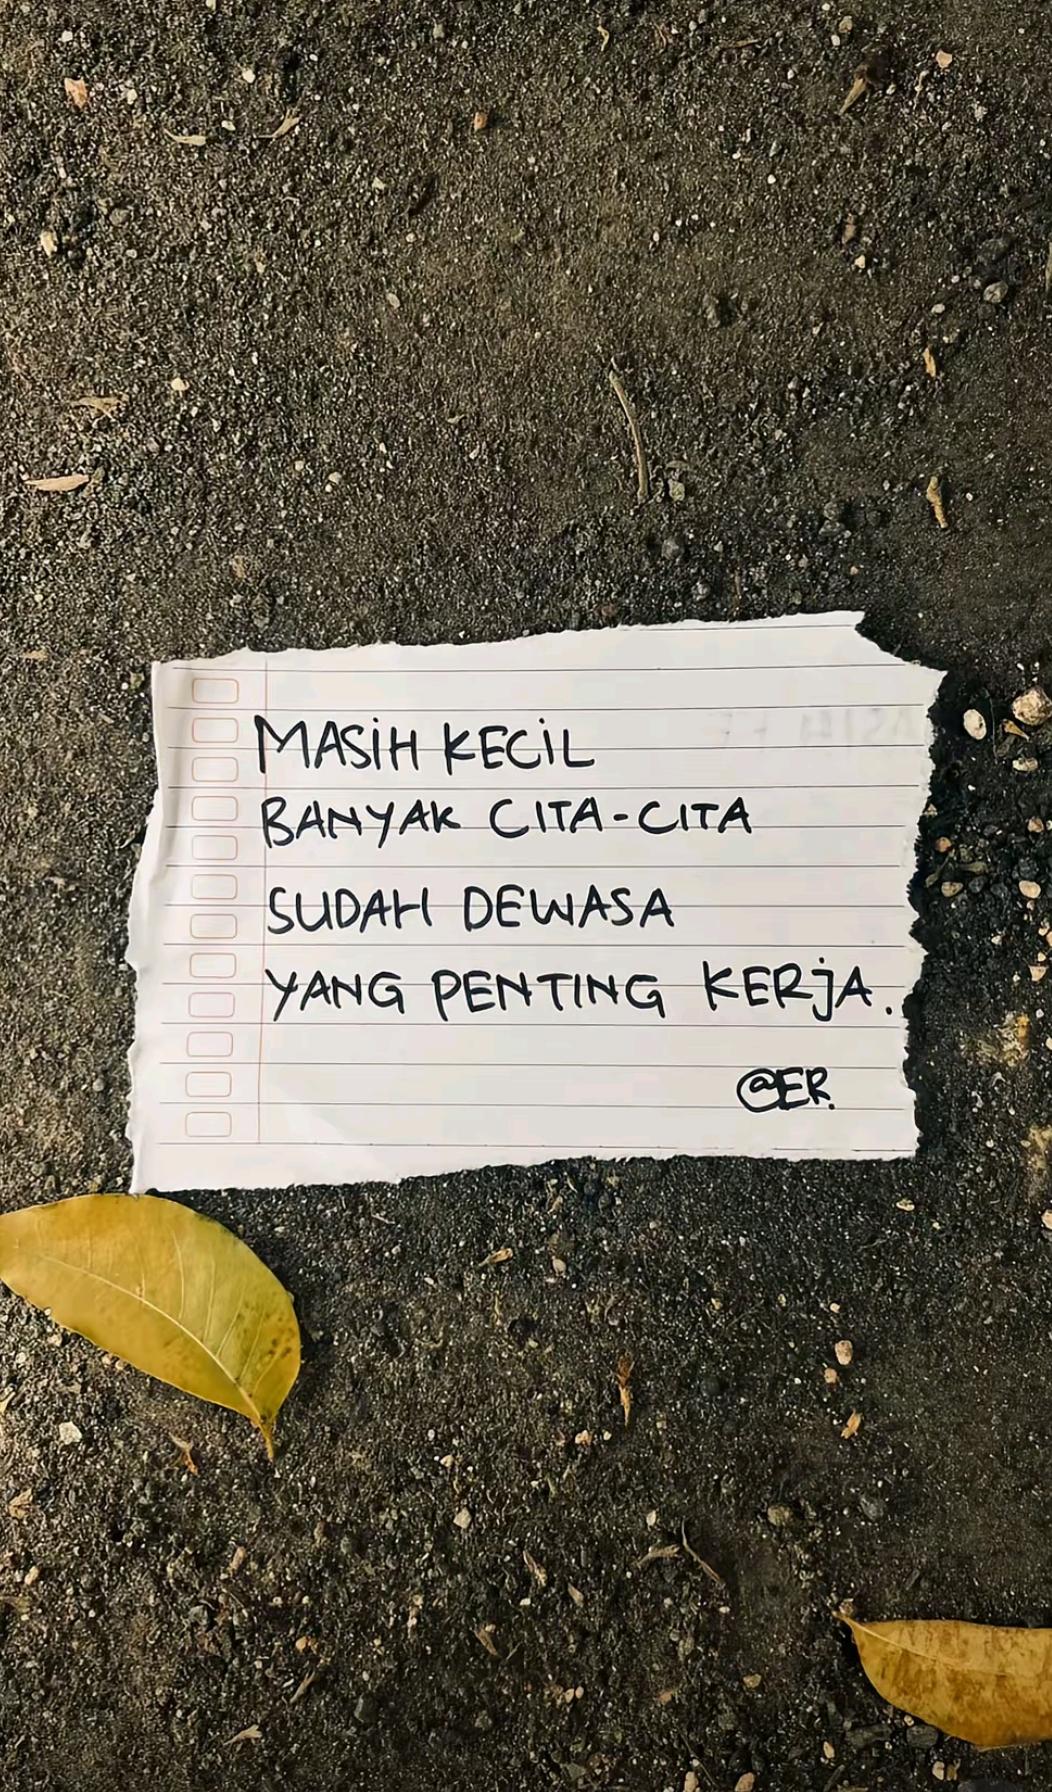 MASiH KECiL
BANYAK CITA-CITA
SUDAH DEWASA
YANG PENTING KERjA.
@ER.